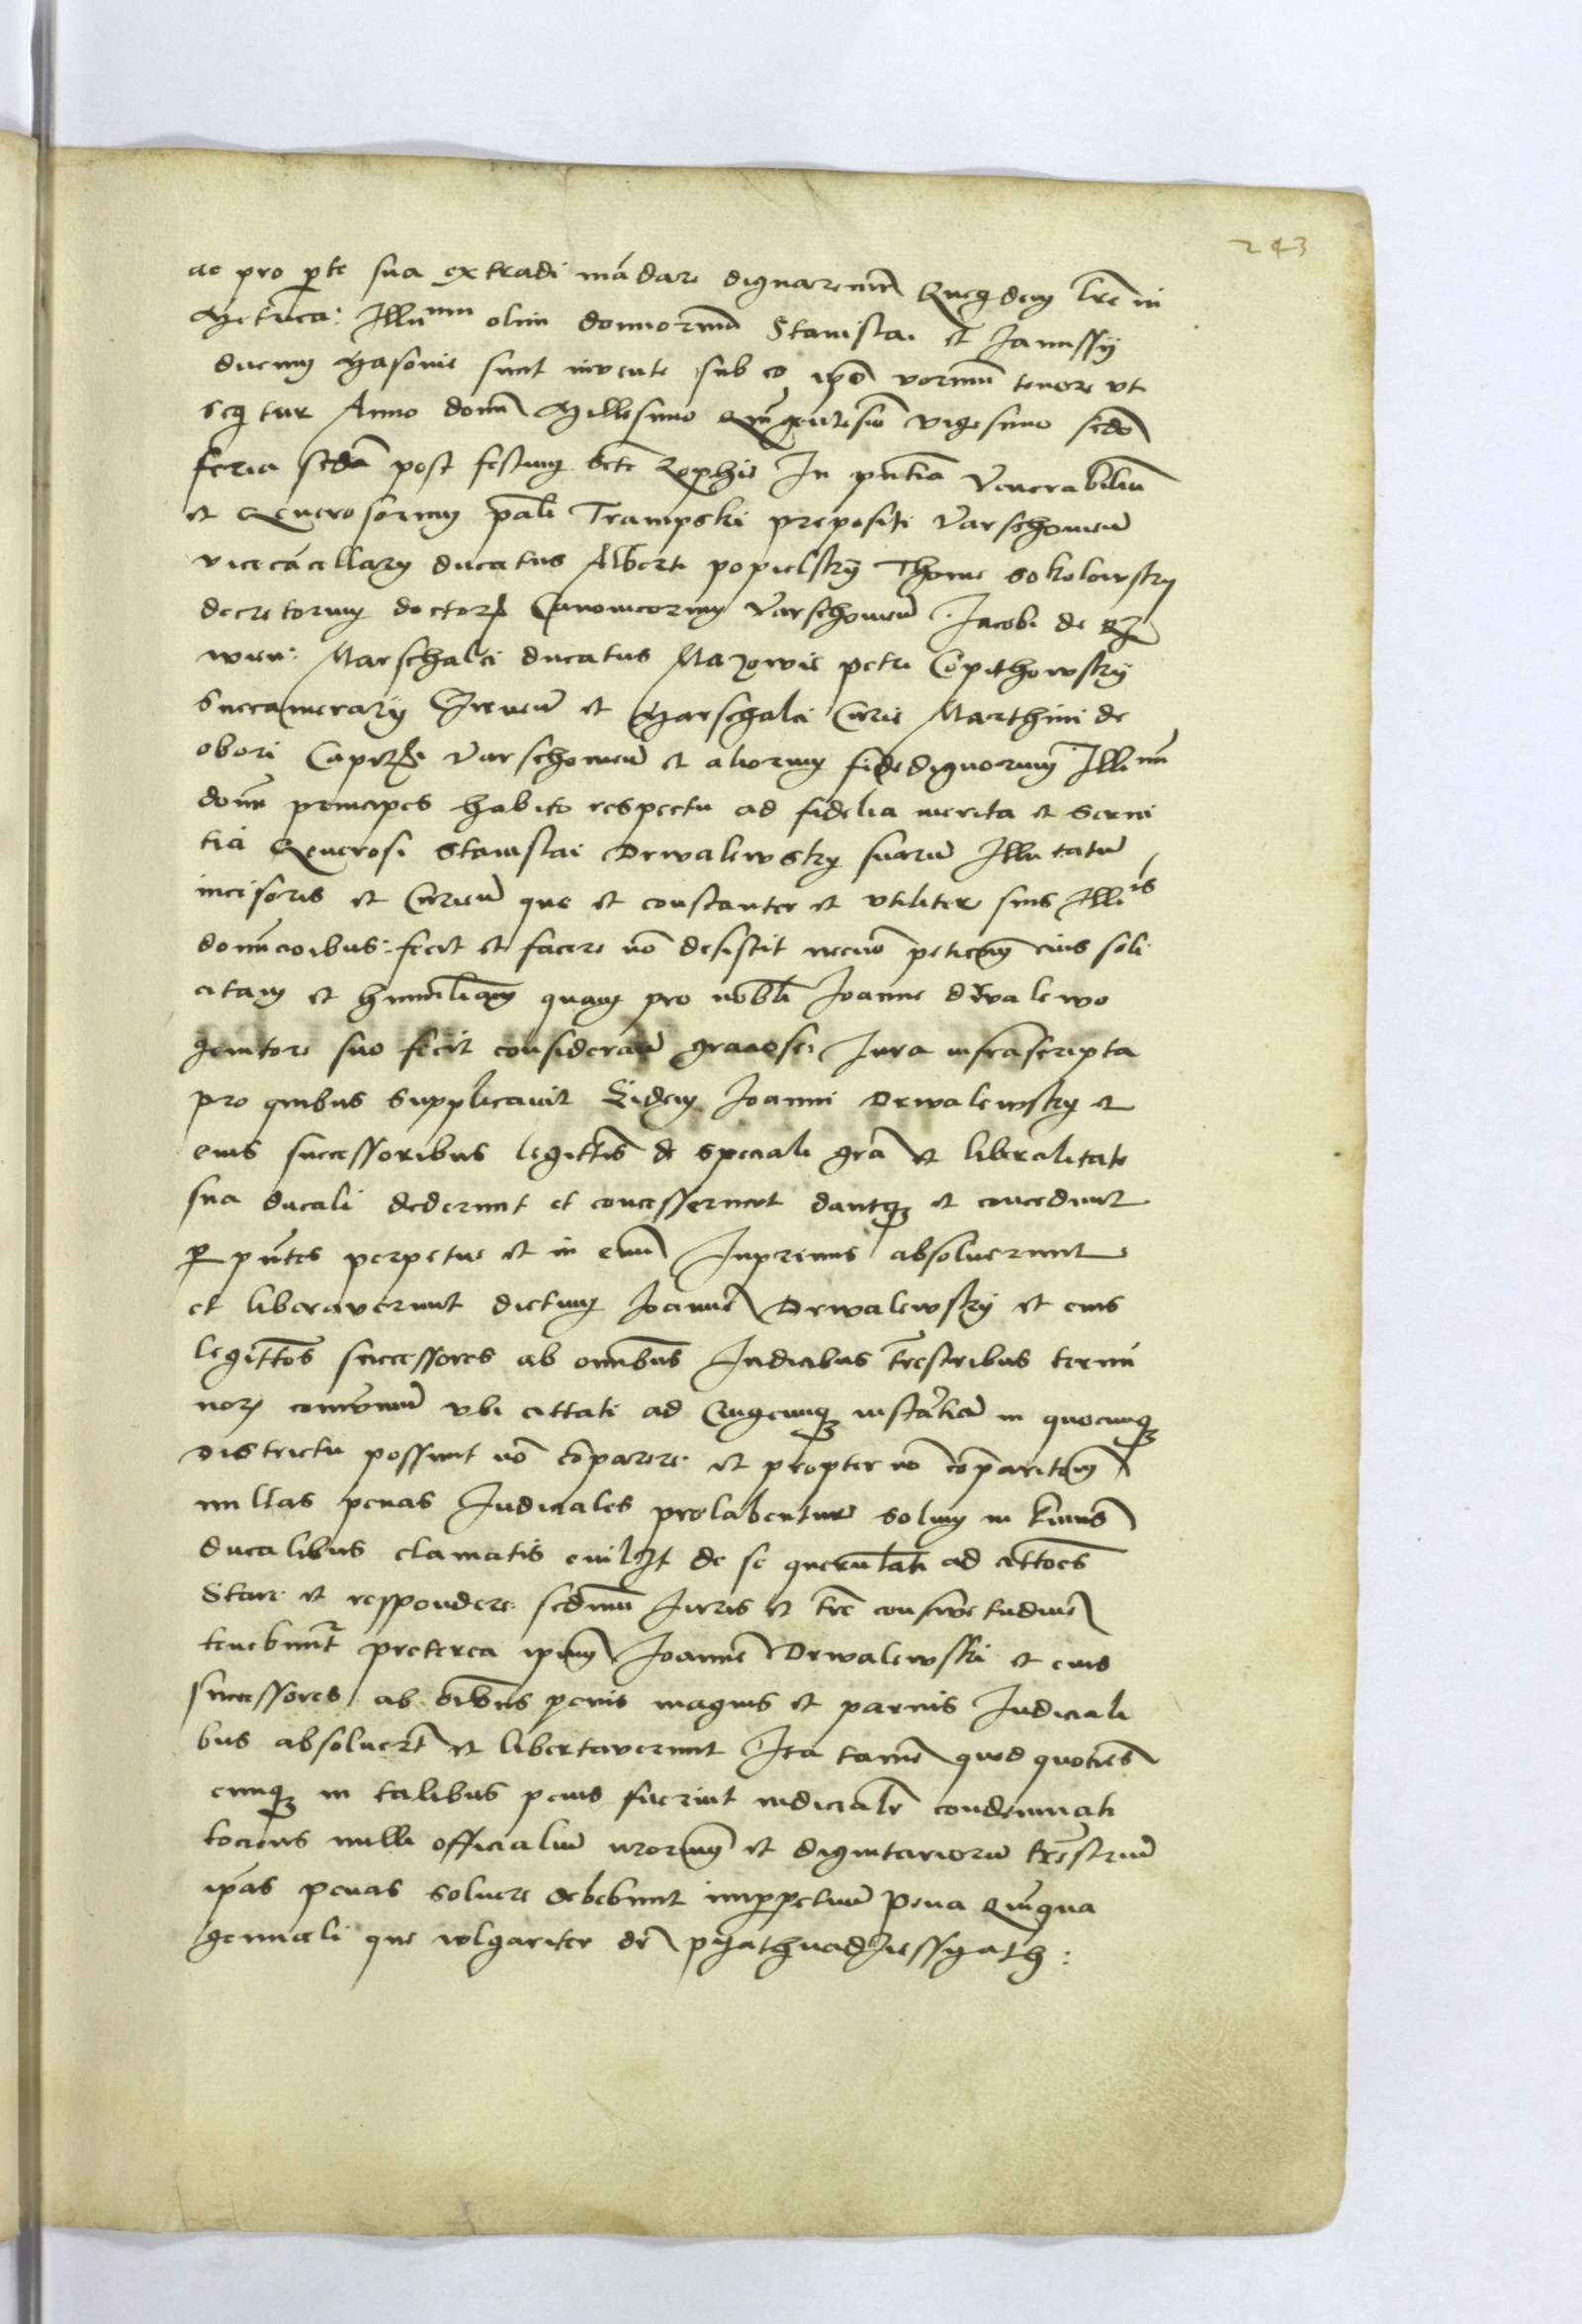 243
ac pro pte sua extradi mādare dignaremur Queqdem lrē in
Metrica: Illu mm olim dominorum Stanislai et Janussij
ducum Masovie sunt invente sub eo ipso verborum tenore ut
seqtur Anno domī Millesimo Quīgentesīo vigesimo secdo
feria secda post festum scte Zophie In pntia Venerabilium
et Generosorum pauli Trampski prepositi Varschovien
vicecācellary ducatus Alberti popielsky Thome Sokolowsky
decretorum doctor Canonicorum Varschovien Jacobi de
wien: Marschalci ducatus Mazovie petri Copithowsky
Succamerarij Cirnen et Marschalci Curie Marthini de
obori Varschovien et aliorum fidedignorum Illmi
domi principes habito respectu ad fidelia merita et servi
tia Generosi Stanislai Drwalewsky suarum Illu tatum
incisoris et que et constanter et utiliter suis Illi is
domīacoibus: fecit et facere nō desistit necnō peticōem eius soli
citam et humilimam quam pro nobli Joanne drwalewo
genitore suo fecit consideran graciose Jura infrascripta
pro quibus supplicavit Eidem Joanni Drwalewsky et
eius successoribus legittīs de speciali gra et liberalitate
sua ducali dederunt et concesserunt dantq et concedunt
p pntes perpetue et in evū Inprimis absolverunt
et liberaverunt dictum Joannē Drwalewsky et eius
legittos successores ab omnibus Judicibus trestribus termi
nor communiū ubi cittati ad Cuiuscunq instātiā in quocunq
districtu possunt nō comparere et propter nō comparitōem
nullas penas Judiciales prolabentur solum in
ducalibus clamatis de se querulāti ad attoēs
Stare et respondere secdmū Juris et tre consuetudinē
tenebunt preterea ipsum Joannē Drwalewski et eius
successores ab oībus penis magnis et parvis Judiciali
bus absolvert et libertaverunt Ita tamē quod quotiens
cunq in talibus penis fuerint iudicialr condemnati
tociens nulli officialium nrorum et dignitariorum trestrium
ipas penas solvere debebunt imperpetuum pena Quīqua
gennali que vulgariter dr pyathnadzessyath: